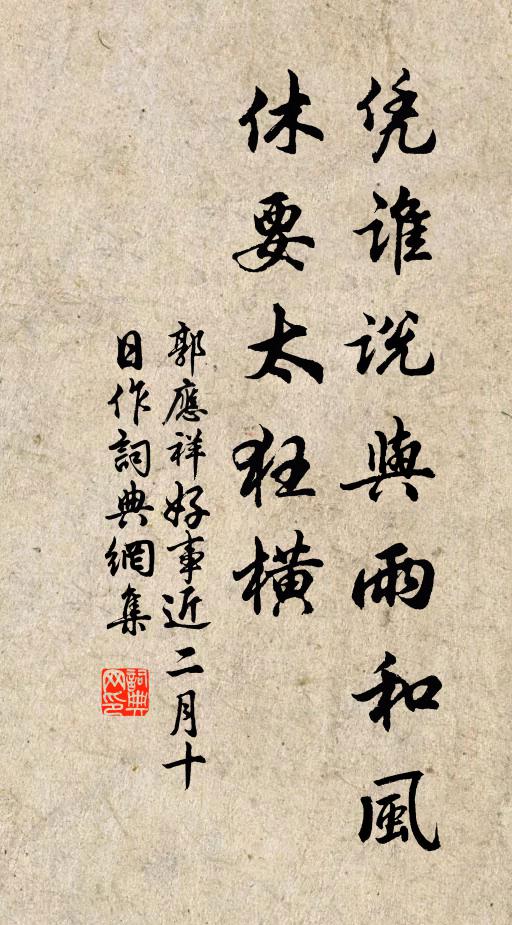 凭谁说與雨和風
休要太狂橫
郭應祥好事近二月十
日作詞典網集
詞典
网印